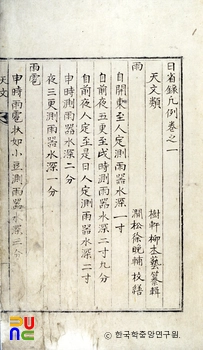 日省錄凡例卷之一
樹軒柳本藝纂輯
天文類
澗松徐俊輔校繕
雨
自開東至人定測雨器水深一寸
自前夜五更至戌時測雨器水深二寸九分
自前夜人定至是日人定測雨器水深二寸
申時測雨器水深二分
夜三更測雨器水深一分
雨雹
申時雨雹狀如小豆測雨器水深三分
天文
PUNC
© 한국학중앙연구원